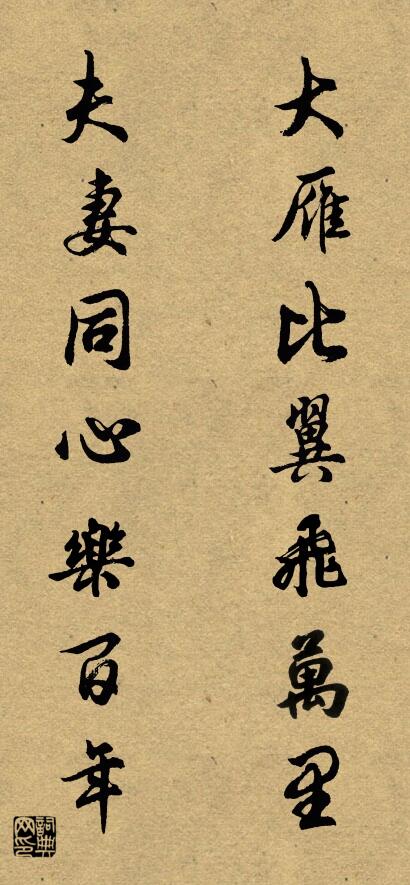 大雁比翼飛萬里
夫妻同心樂百年
詞典
网印